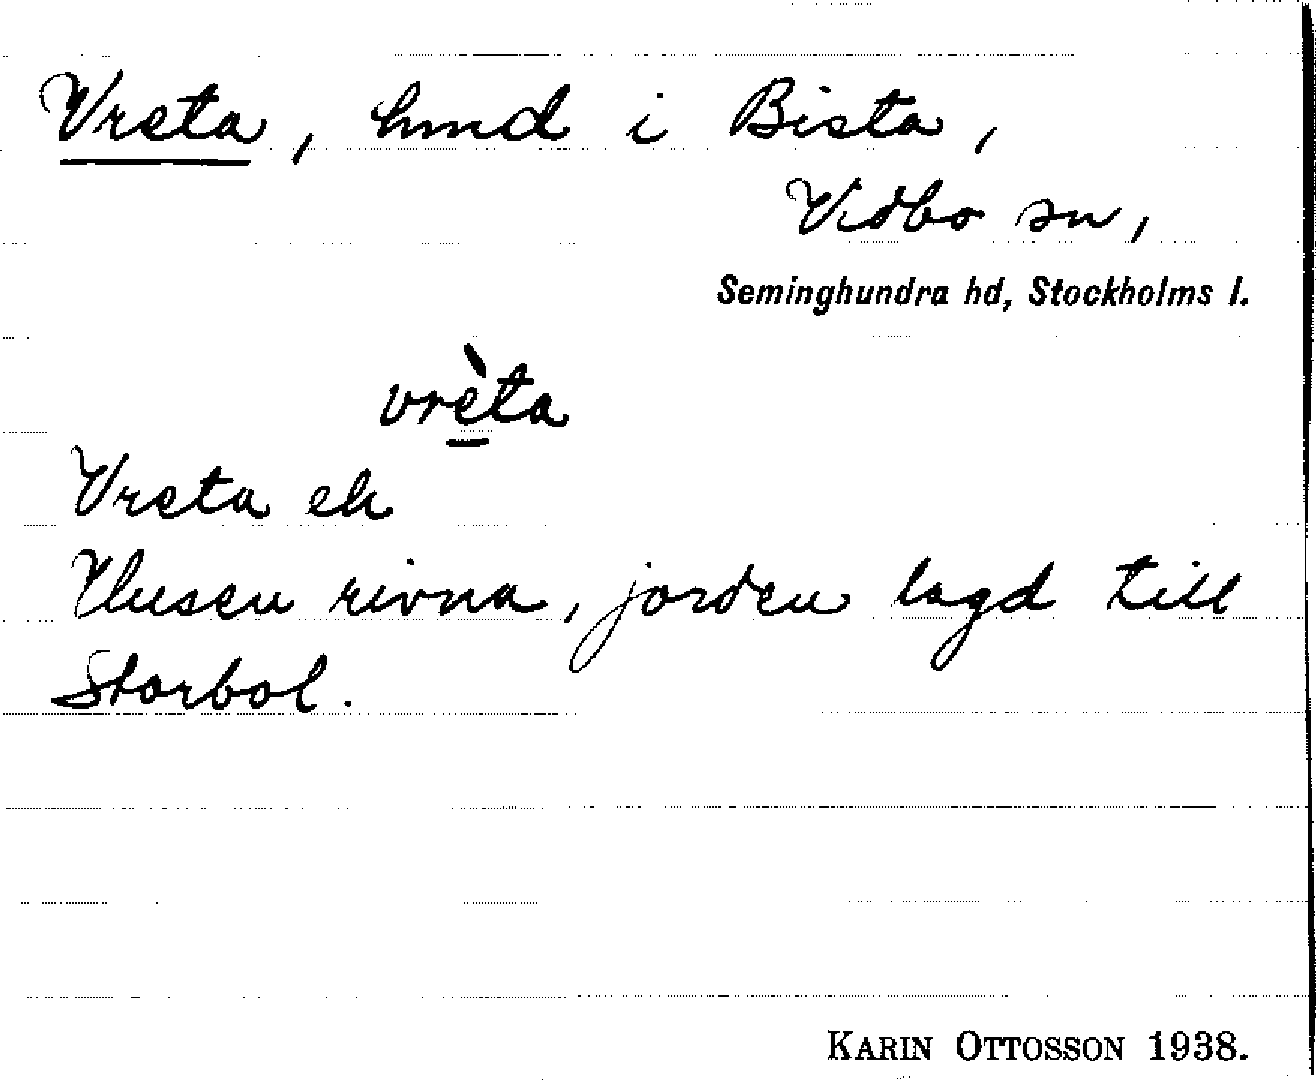 Vreta, hmd i Bista,
Vidbo sn,
Seminghundra hd, Stockholms l.
vrèta
Vreta ek
Husen rivna, jorden lagd till
Storbol.
KARIN OTTOSSON 1938.